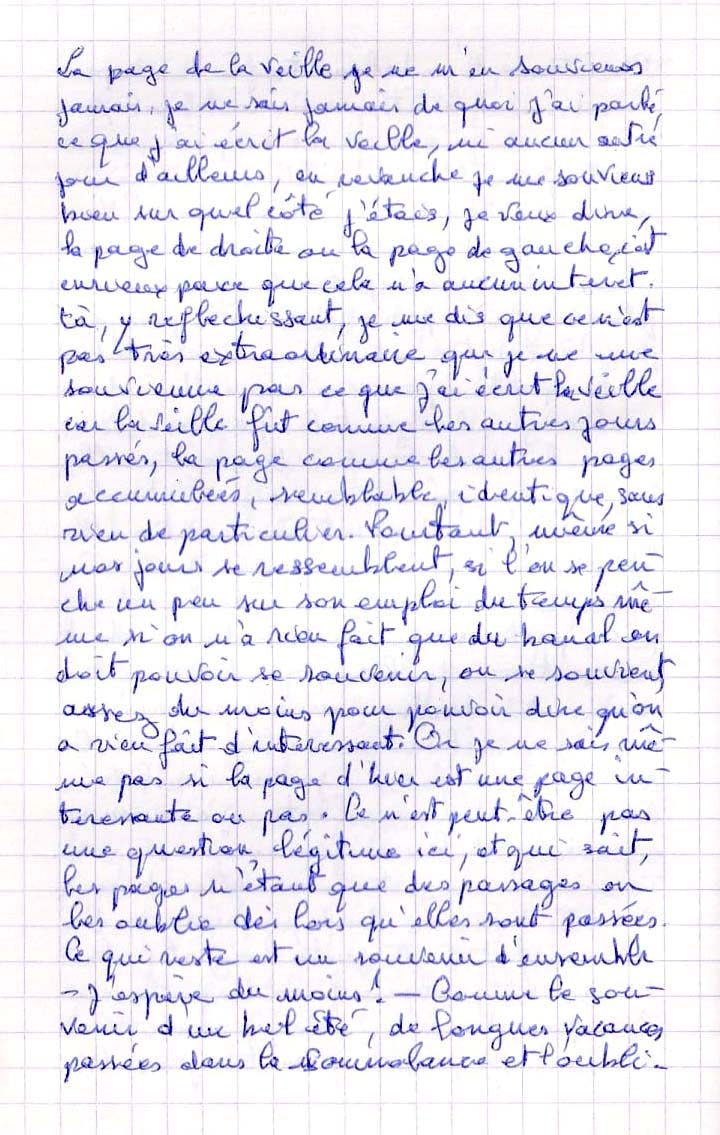 La page de la veille je ne m'en souviens
jamais, je ne sais jamais de quoi j'ai parlé,
ce que j'ai écrit la veille, ni aucun autre
jour d'ailleurs, en revanche je me souviens
bien sur quel côté j'étais, je veux dire,
la page de droite ou la page de gauche, c'est
curieux parce que cela n'a aucun interet.
Là, y reflechissant, je me dis que ce n'est
pas très extraordinaire que je ne me
souvienne pas ce que j'ai écrit la veille
car la veille fut comme les autres jours
passés, la page comme les autres pages
accumulées, semblable, identique, sans
rien de particulier. Pourtant, même si
nos jours se ressemblent, si l'on se pen-
che un peu sur son emploi du temps mê-
me si on n'a rien fait que du banal on
doit pouvoir se souvenir, on se souvient
assez du moins pour pouvoir dire qu'on
a rien fait d'interessant. Or je ne sais mê-
me pas si la page d'hier est une page in-
teressante ou pas. Ce n'est peut-être pas
une question légitime ici, et qui sait,
les pages n'étant que des passages on
les oublie dès lors qu'elles sont passées.
Ce qui reste est un souvenir d'ensemble
- J'espère du moins! - Comme le sou-
venir d'un bel été, de longues vacances
passées dans la somnolance et l'oubli.